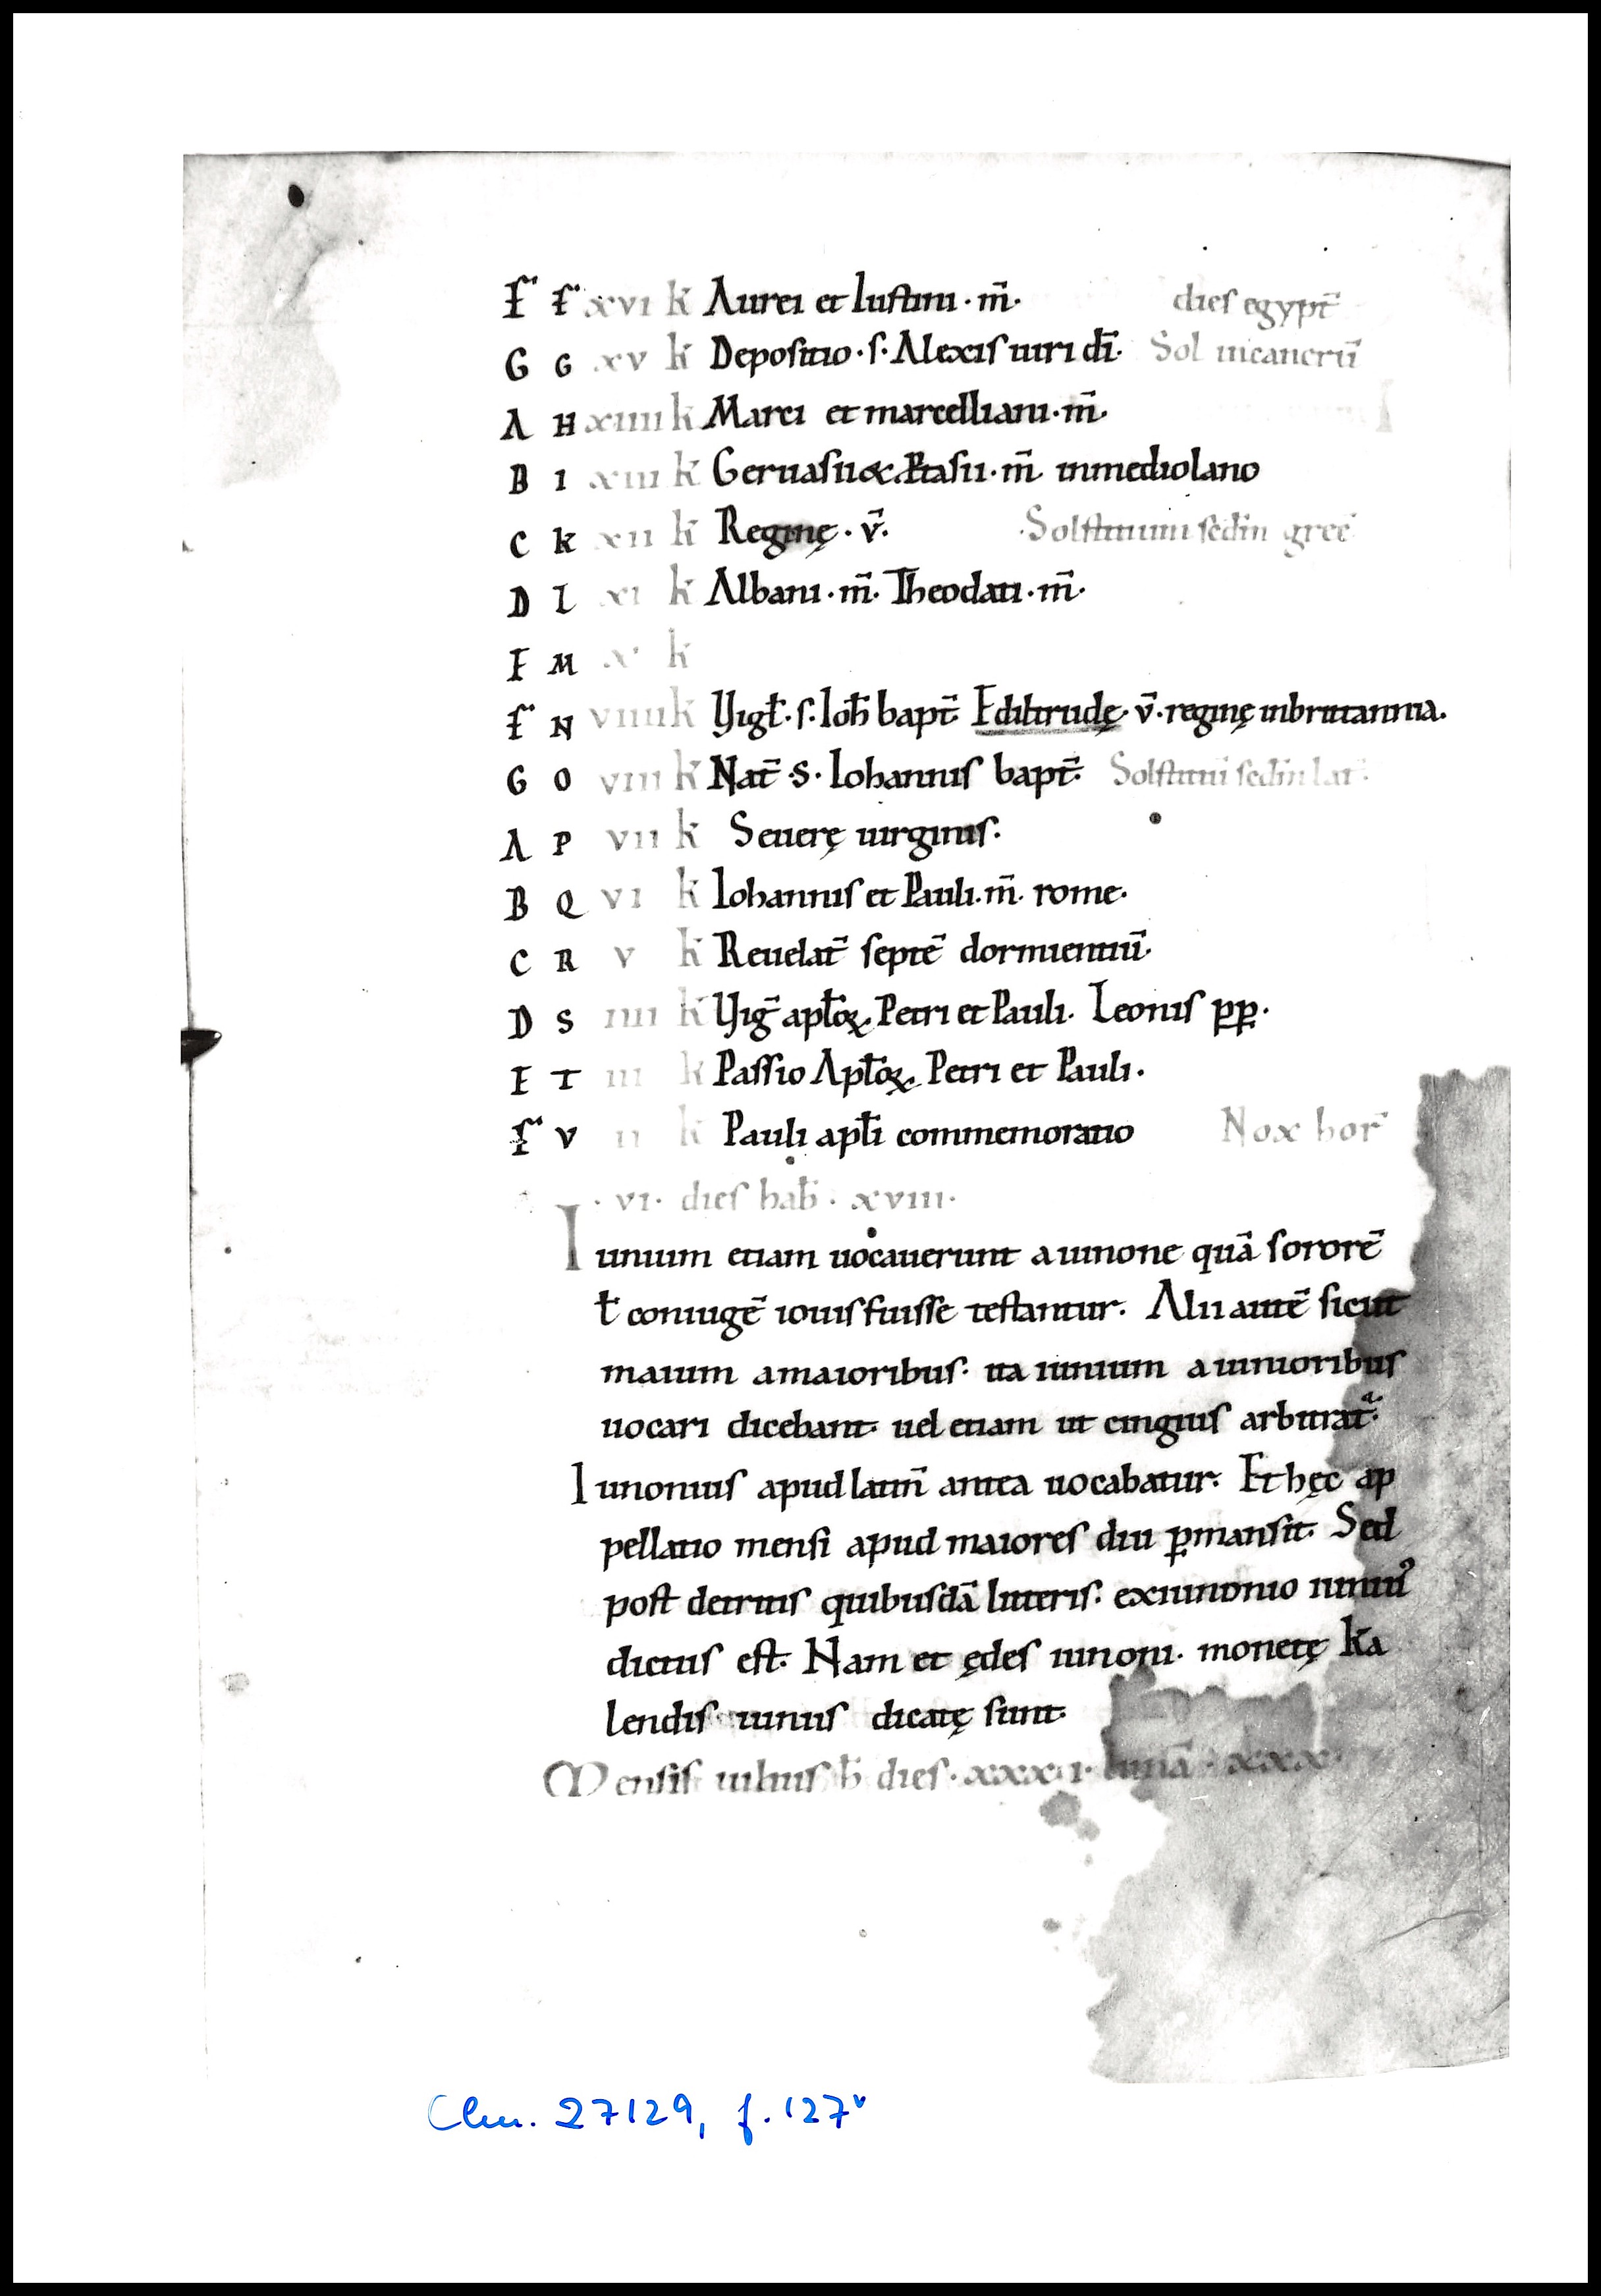 F F xvi k̄ Aurei et Iustini · m̄· dies egypt̄
G G xv k̄ Depositio · s · Alexis uiri dī· Sol in cancrū
A H xiiii k̄ Marci et marcelliani · m̄·
B I xiii k̄ Geruasii & Ptasii · m̄ inmediolano
C K xii k̄ Reginę · v̄· Solstitium scd̄m grec̄
D L xi k̄ Albani · m̄· Theodati · m̄·
E M x k̄
F N viiii k̄ Vigł · s · Ioh̄ bapt̄ Ediltrudę · v̄ · reginę inbrittannia.
G O viii k̄ Nat̄ · s · Iohannis bapt̄· Solstitiū scd̄m lat̄·
A P vii k̄ Seuerę uirginis·
B Q vi k̄ Iohannis et Pauli · m̄· rome·
C R v k̄ Reuelat̄ septē dormientiū·
D S iiii k̄ Viḡ aplōꝝ Petri et Pauli· Leonis pp·
E T iii k̄ Passio Aplōꝝ Petri et Pauli·
F V ii k̄ Pauli apłi commemoratio Nox hor̄
· vi · dies hab̄ · xviii·
Iunium etiam uocauerunt a iunone quā sororē
ł coniugē iouis fuisse testantur· Alii autē sicut
maium amaioribus· ita iunium a iunioribus
uocari dicebant· uel etiam ut cingius arbitrat̄·
Iunonius apud latin̄ antea uocabatur· Et hęc ap
pellatio mensi apud maiores diu ꝑmansit· Sed
post detritis quibusdā litteris· exiunonio iuniꝰ
dictus est· Nam et ędes iunoni· monetę ka
lendis iuniis dicatę sunt·
Mensis iulius h̄ dies · xxxi · lunā · xxx
Clm. 27129, f. 127v